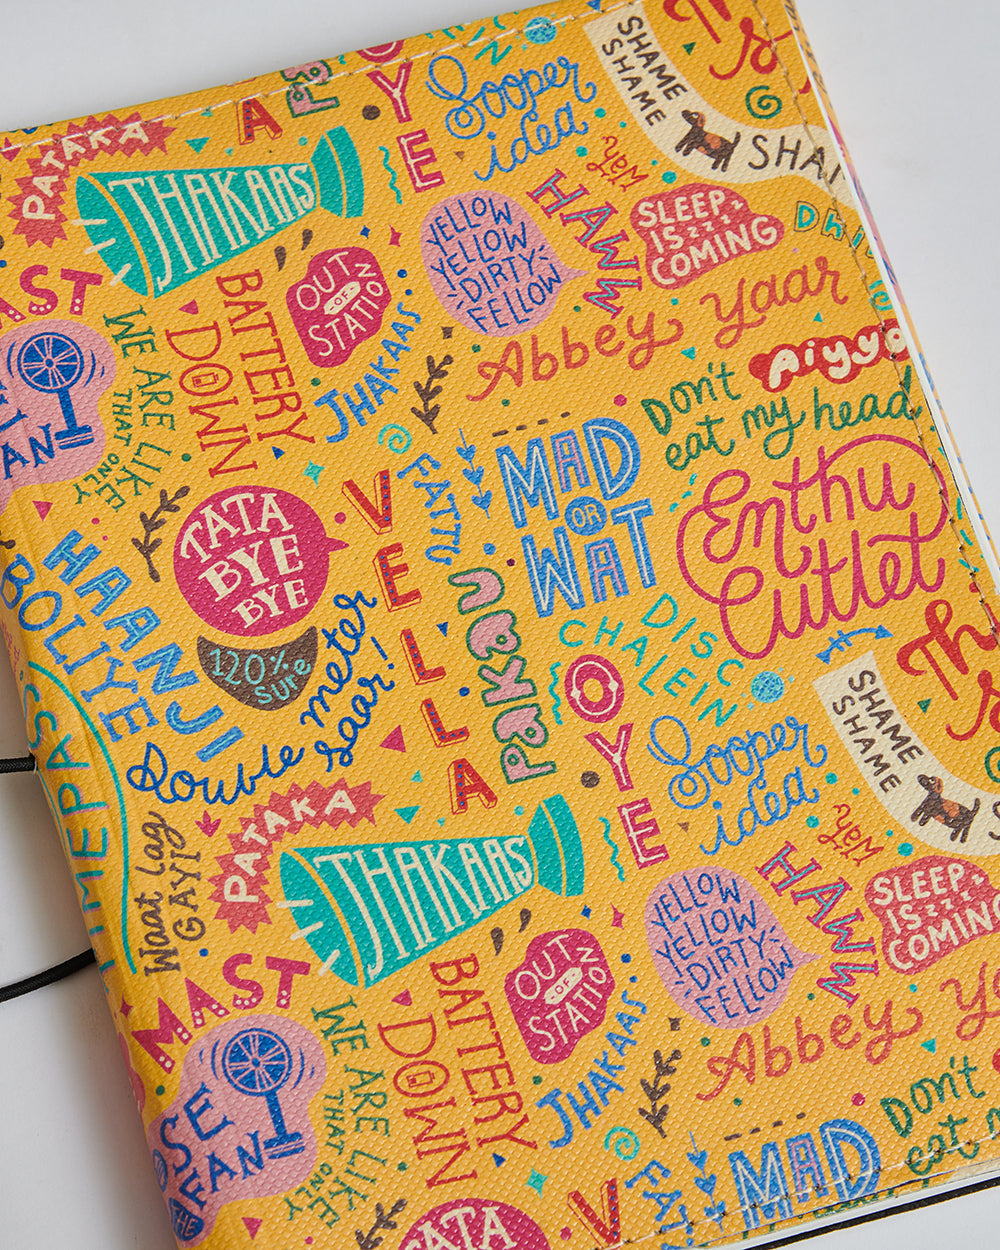 PATAKA
A
Pak
OYE
Sooper
idea
DISC
CHALEIN
SHAME
SHAME
SHAM
Th
THAKAAS
MAST
YELLOW
YELLOW
DIRTY
FELLOW
HAWW
Yeh
SLEEP
IS zzz
COMING
Dhi
OUT
OF
STATION
BATTERY
DOWN
JHAKAAS
Abbey Yaar
FAN
WE ARE LIKE
THAT ONLY
Don't
eat my head
Aiyyo
MAD
OR
WAT
Enthu
Cutlet
TATA
BYE
BYE
FATTU
VELLA
HAANJI
BOLIYE
120%
sure
Double meter
saar!
PakaU
OYE
DISC
CHALEIN
Sooper
idea
SHAME
SHAME
Th
TIMEPASS
Waat lag
GAYI
PATAKA
THAKAAS
YELLOW
YELLOW
DIRTY
FELLOW
HAWW
Yeh
SLEEP
IS zzz
COMING
MAST
OUT
OF
STATION
BATTERY
DOWN
JHAKAAS
Abbey Y
USE
THE
FAN
WE ARE LIKE
THAT ONLY
Don't
eat
MAD
FATTU
V
TATA